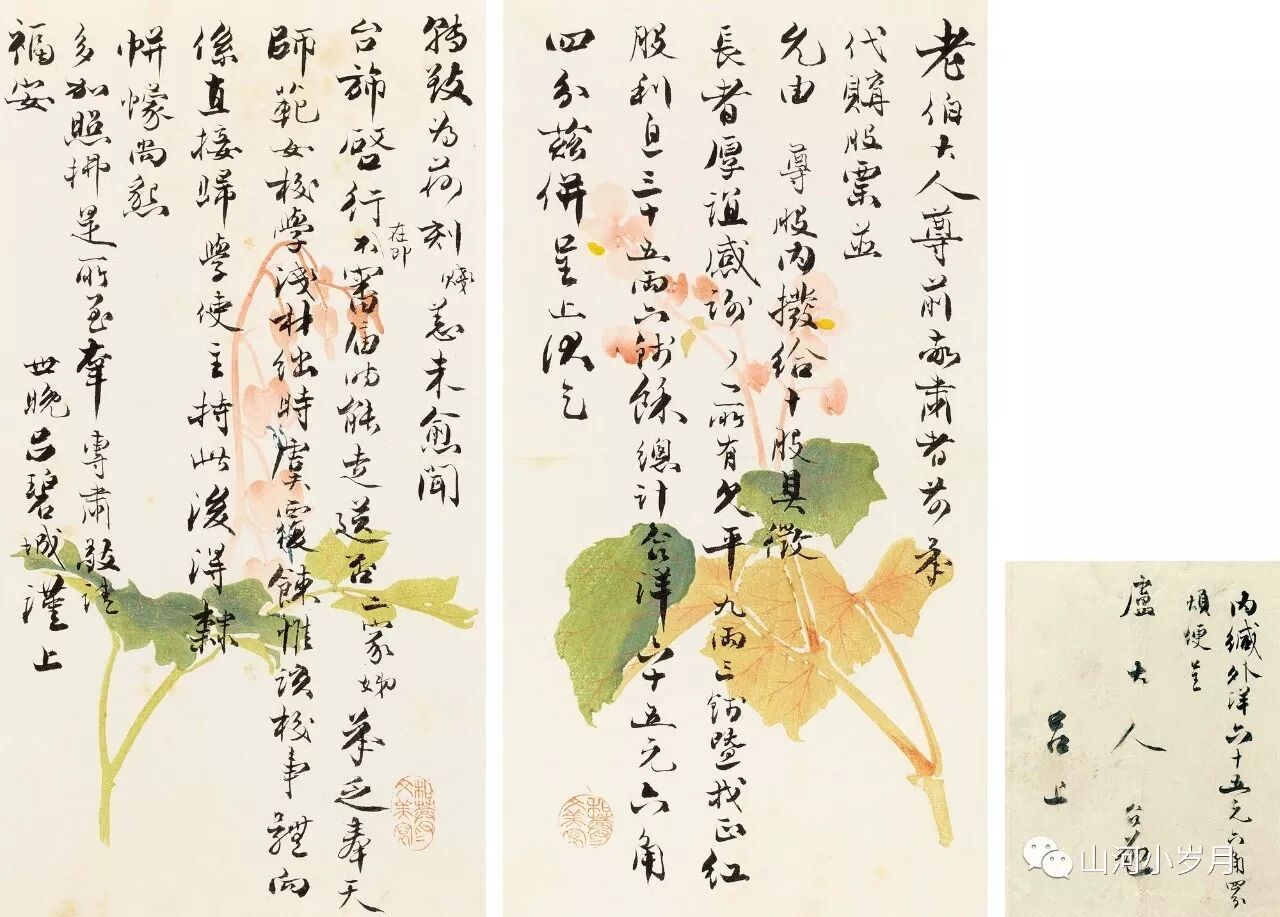 老伯大人尊前敬肅者前承
代購股票並
允由 尊股內撥給十股具徵
長者厚誼感謝〻所有欠平九兩三錢暨找正紅
股利息三十五兩六錢餘總計合洋六十五元六角
四分茲併呈上祈乞
轉致為荷刻賤恙未愈聞
台旆啓行在即不審屆時能走送否二家姊承乏奉天
師範女校學淺材絀時虞覆餗惟該校事體向
係直接歸學使主持此後得隸
帡幪尚懇
多加照拂是所至幸專肅敬請
福安
世晚呂碧城謹上
內緘外洋六十五元六角四分
煩便呈
盧大人台啓
呂上
山河小岁月